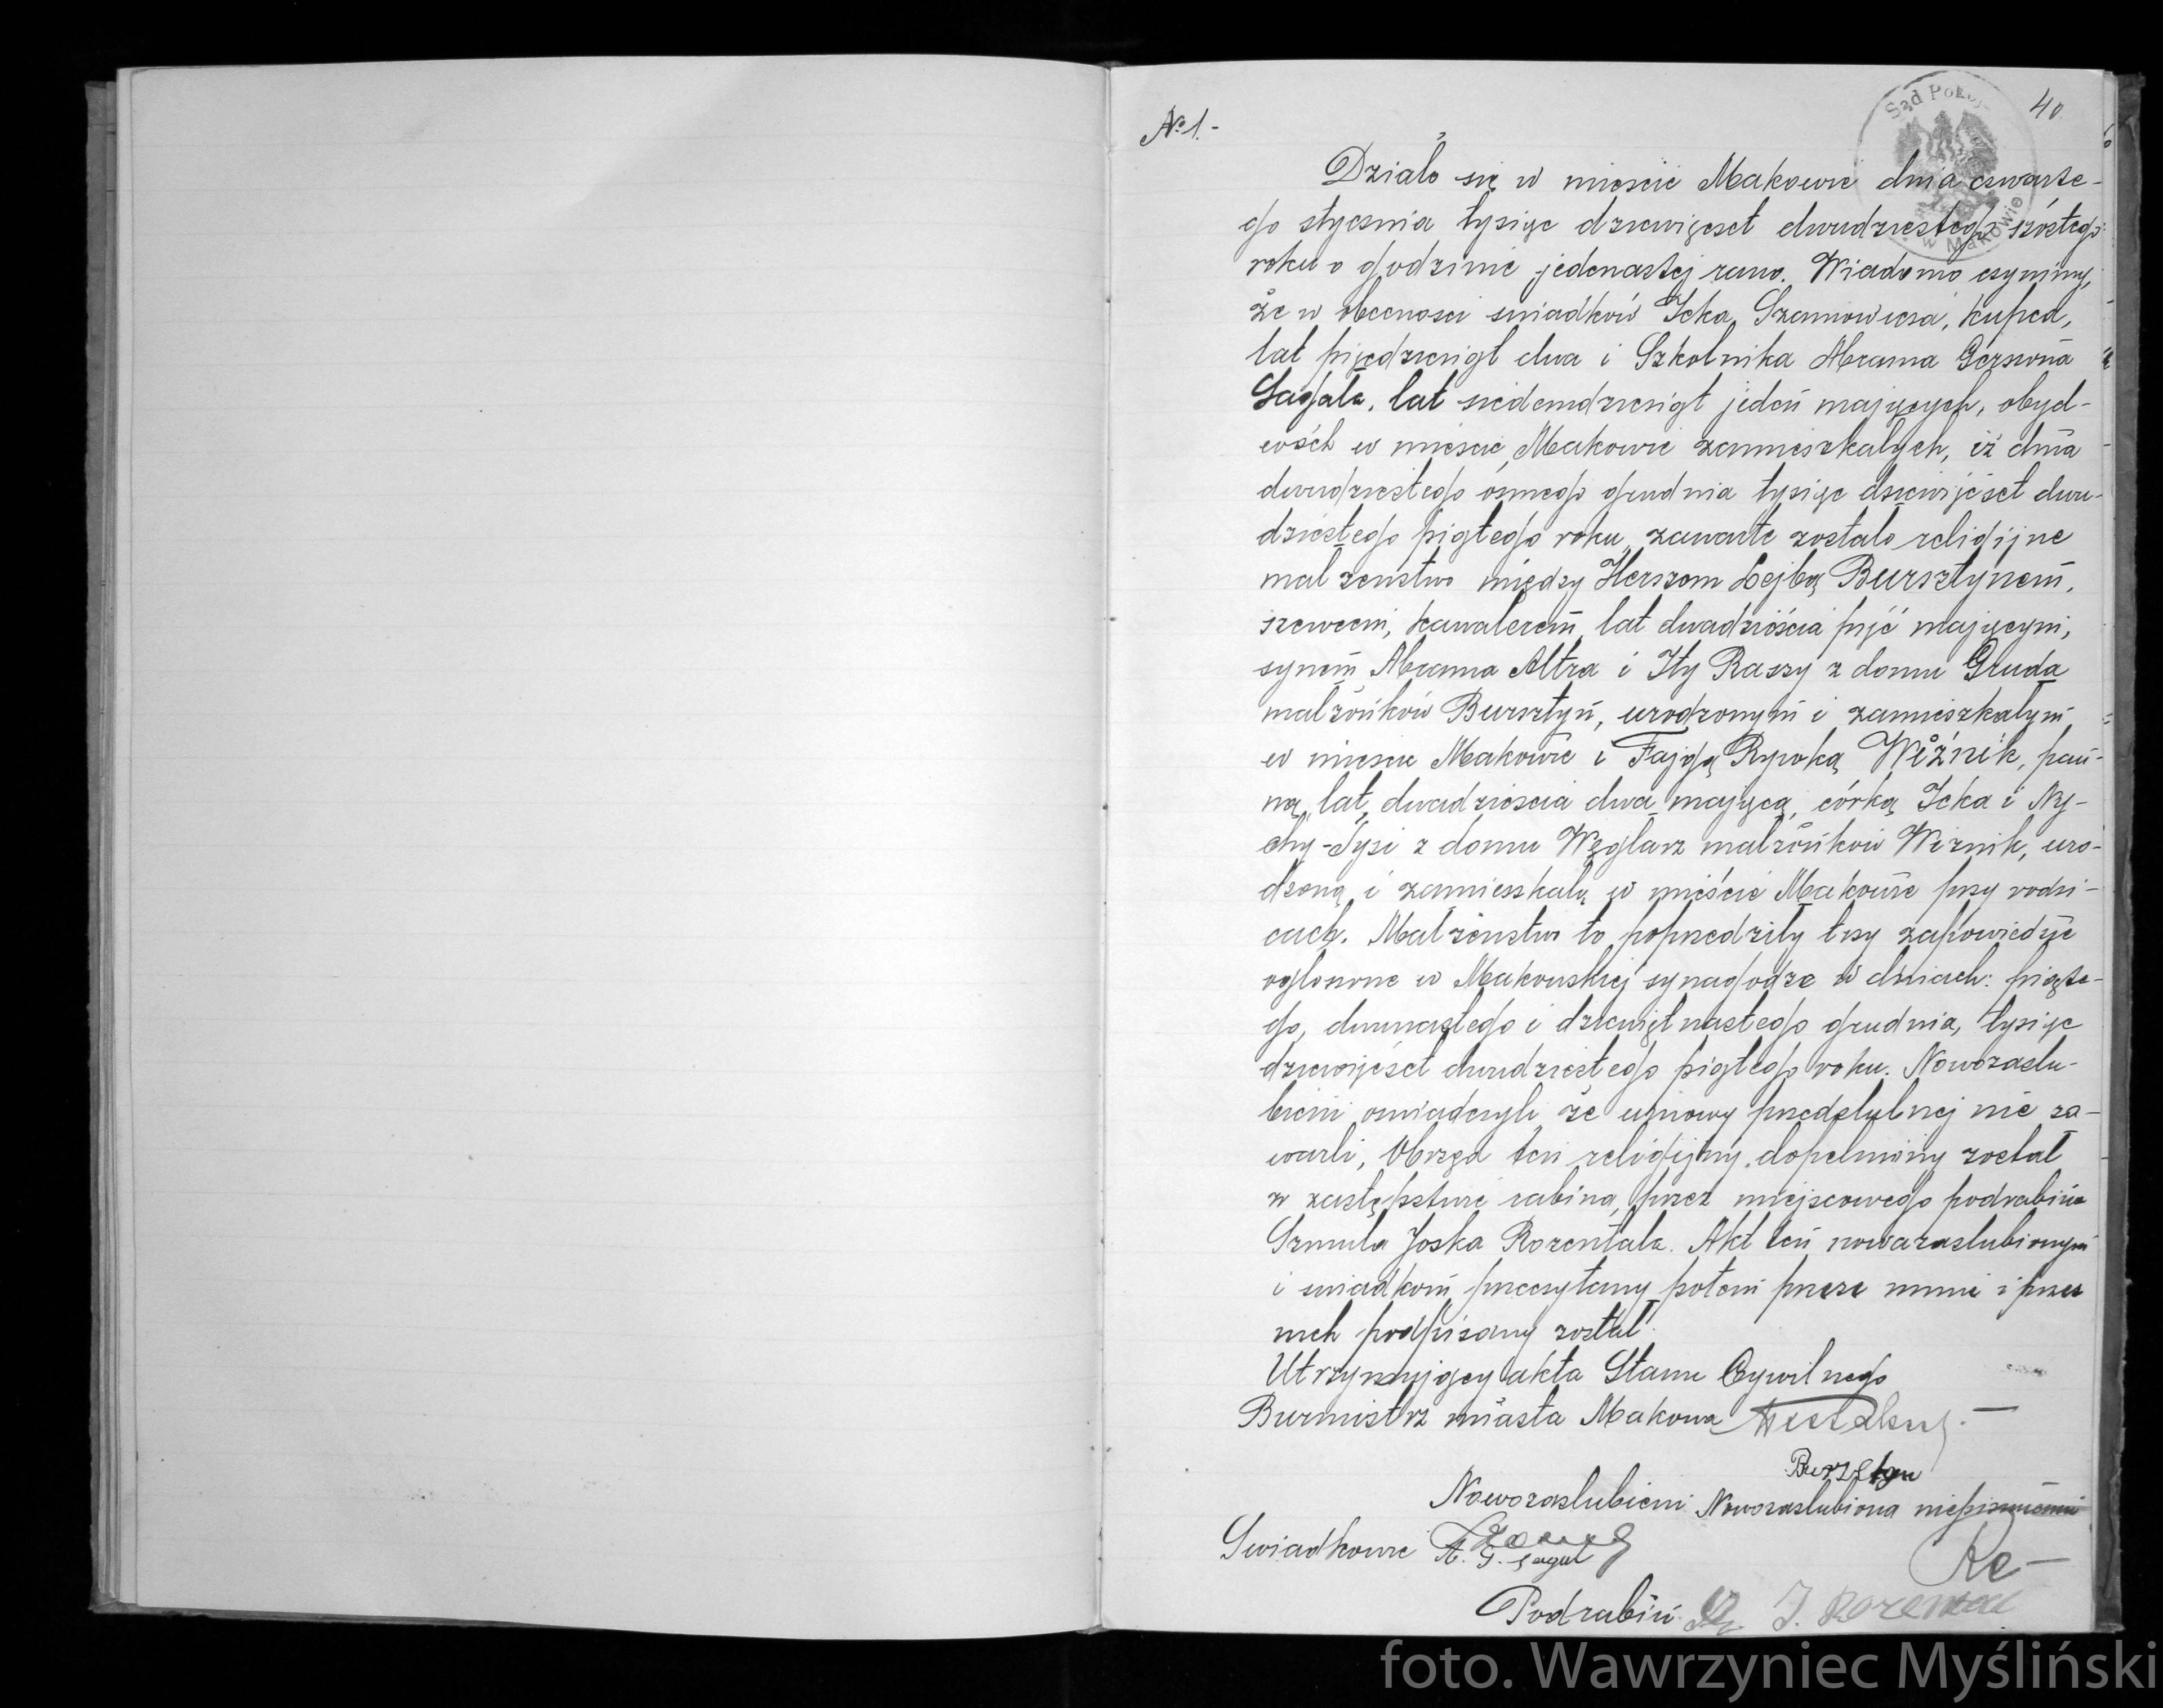 № 1.-
40
Sąd Poko
w Makowie
Działo się w mieście Makowie dnia czwarte-
go stycznia tysiąc dziewięćset dwudziestego szóstego
roku o godzinie jedenastej rano. Wiadomo czynimy,
że w obecności świadków Icka Szamowicza, kupca,
lat pięćdziesiąt dwa i Szkolnika Abrama Gerszona
Sagała, lat siedemdziesiąt jeden mających, obyd-
wóch w mieście Makowie zamieszkałych, iż dnia
dwudziestego ósmego grudnia tysiąc dziewięćset dwu-
dziestego piątego roku, zawarte zostało religijne
małżeństwo między Herszem Lejbą Bursztynem,
szewcem, kawalerem lat dwadzieścia pięć mającym,
synem Abrama Altra i Ity Raszy z domu Gruda
małżonków Bursztyn, urodzonym i zamieszkałym
w mieście Makowie i Fajgą Rywką Wiźnik, pan-
ną, lat dwadzieścia dwa mającą, córką Icka i Ny-
chy-Tysi z domu Węglarz małżonków Wiznik, uro-
dzoną i zamieszkałą w mieście Makowie przy rodzi-
cach. Małżeństwo to poprzedziły trzy zapowiedzie
ogłoszone w Makowskiej synagodze w dniach: piąte-
go, dwunastego i dziewiętnastego grudnia, tysiąc
dziewięćset dwudziestego piątego roku. Nowozaślu-
bieni oświadczyli że umowy przedślubnej nie za-
warli, Obrząd ten religijny dopełniony został
w zastępstwie rabina, przez miejscowego podrabina
Szmula Joska Rozentala. Akt ten nowozaślubionym
i świadkom przeczytany potem przeze mnie i przez
nich podpisany został.
Utrzymujący akta Stanu Cywilnego
Burmistrz miasta Makowa
Bursztyn
Nowozaślubieni: Nowozaślubiona niepiśmienna
Świadkowie
A. G. Sagal
Podrabin J. Rozental
foto. Wawrzyniec Myśliński